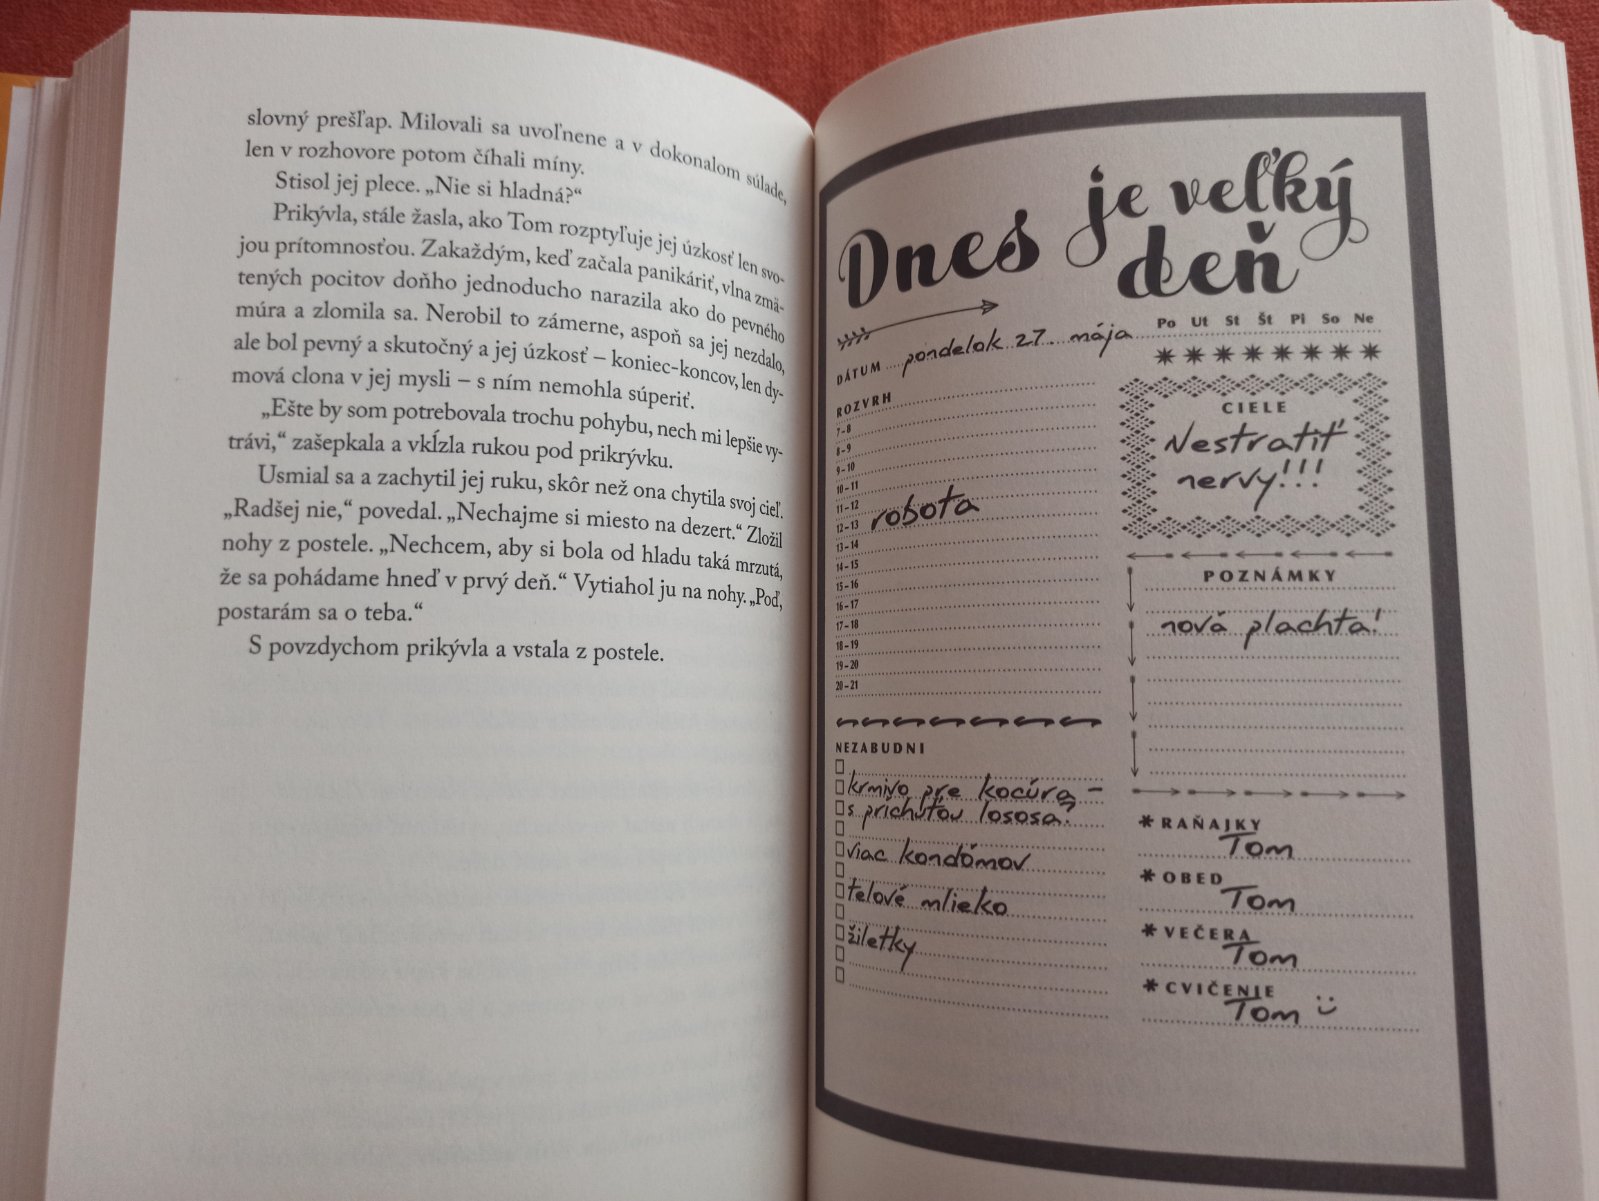 slovný prešľap. Milovali sa uvoľnene a v dokonalom súlade,
len v rozhovore potom číhali míny.
Stisol jej plece. „Nie si hladná?“
Prikývla, stále žasla, ako Tom rozptyľuje jej úzkosť len svo-
jou prítomnosťou. Zakaždým, keď začala panikáriť, vlna zmä-
tených pocitov doňho jednoducho narazila ako do pevného
múra a zlomila sa. Nerobil to zámerne, aspoň sa jej nezdalo,
ale bol pevný a skutočný a jej úzkosť – koniec-koncov, len dy-
mová clona v jej mysli – s ním nemohla súperiť.
„Ešte by som potrebovala trochu pohybu, nech mi lepšie vy-
trávi,“ zašepkala a vkĺzla rukou pod prikrývku.
Usmial sa a zachytil jej ruku, skôr než ona chytila svoj cieľ.
„Radšej nie,“ povedal. „Nechajme si miesto na dezert.“ Zložil
nohy z postele. „Nechcem, aby si bola od hladu taká mrzutá,
že sa pohádame hneď v prvý deň.“ Vytiahol ju na nohy. „Poď,
postarám sa o teba.“
S povzdychom prikývla a vstala z postele.
Dnes je veľký
deň
Po Ut St Št Pi So Ne
DÁTUM pondelok 27. mája
ROZVRH
7–8
8–9
9–10
10–11
11–12
12–13 robota
13–14
14–15
15–16
16–17
17–18
18–19
19–20
20–21
NEZABUDNI
krmivo pre kocúra –
s príchuťou lososa?
viac kondómov
telové mlieko
žiletky
CIELE
Nestratiť
nervy!!!
POZNÁMKY
nová plachta!
* RAŇAJKY
Tom
* OBED
Tom
* VEČERA
Tom
* CVIČENIE
Tom :)